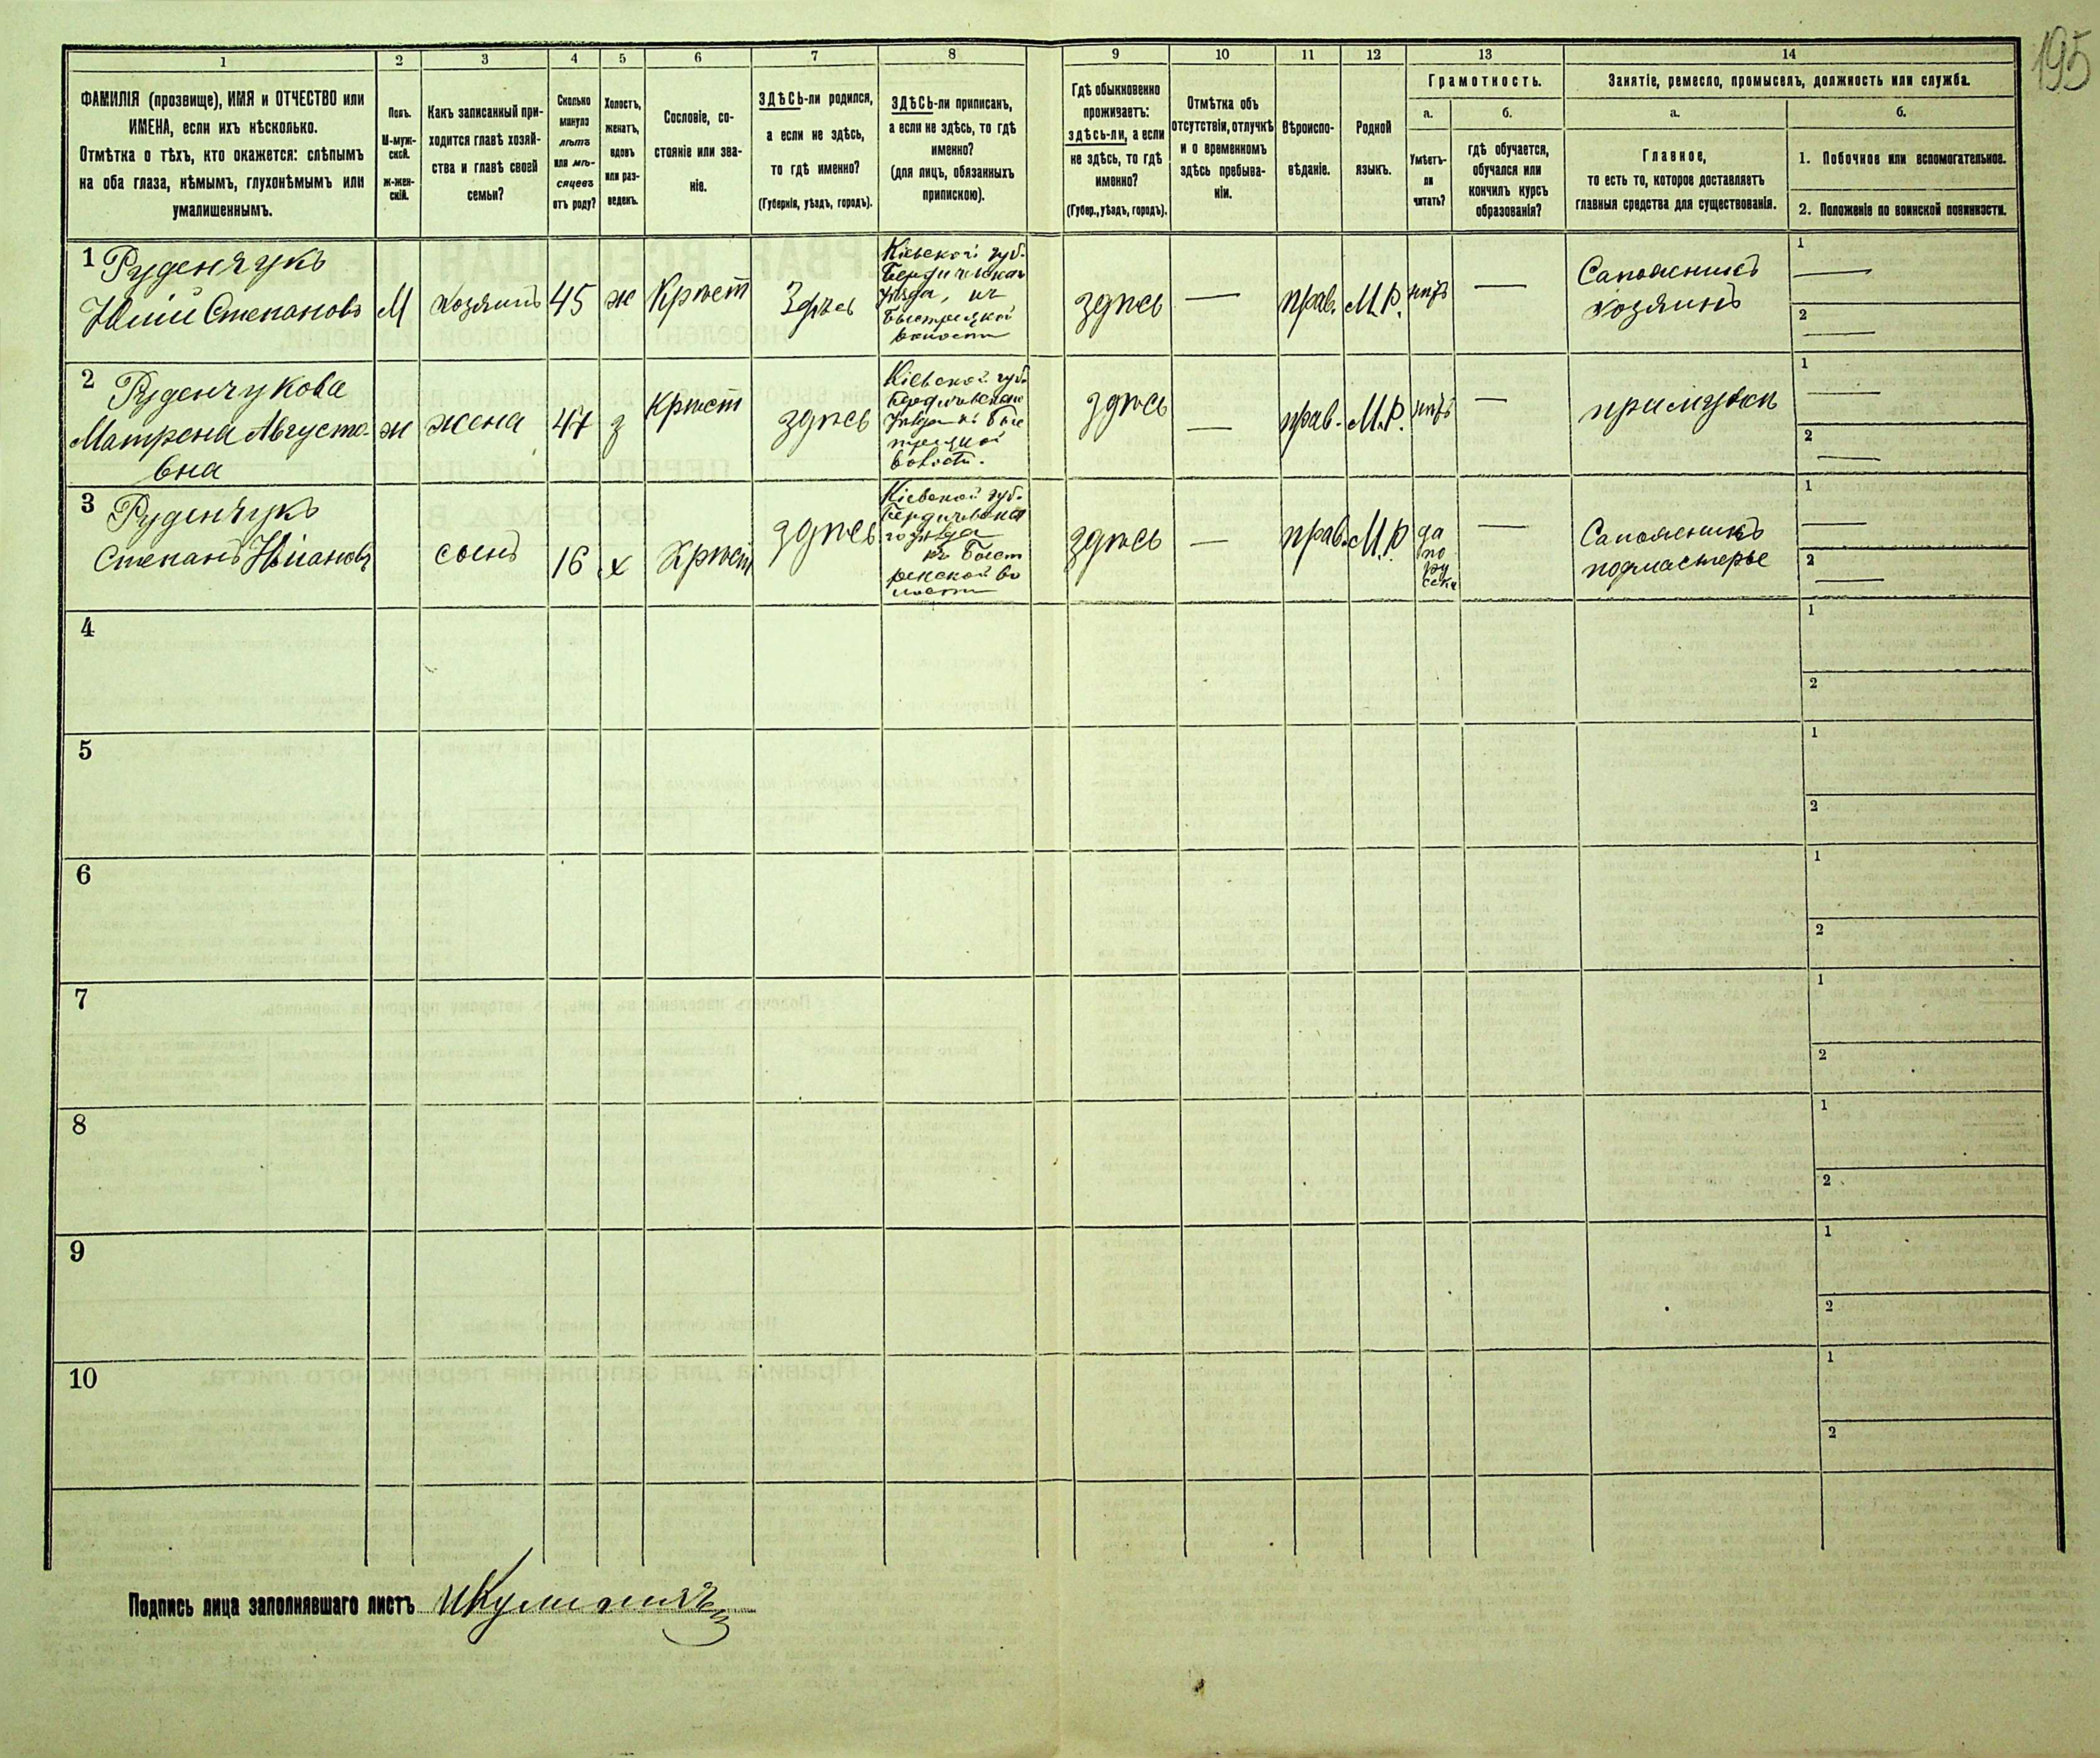 195
1 2 3 4 5 6 7 8 9 10 11 12 13 14
ФАМИЛІЯ (прозвище), ИМЯ и ОТЧЕСТВО или
ИМЕНА, если ихъ нѣсколько.
Отмѣтка о тѣхъ, кто окажется: слѣпымъ
на оба глаза, нѣмымъ, глухонѣмымъ или
умалишеннымъ.
Полъ.
М-муж-
ской.
ж-жен-
скій.
Какъ записанный при-
ходится главѣ хозяй-
ства и главѣ своей
семьи?
Сколько
минуло
лѣтъ
или мѣ-
сяцевъ
отъ роду?
Холостъ,
женатъ,
вдовъ
или раз-
веденъ.
Сословіе, со-
стояніе или зва-
ніе.
ЗДѢСЬ-ли родился,
а если не здѣсь,
то гдѣ именно?
(Губернія, уѣздъ, городъ).
ЗДѢСЬ-ли приписанъ,
а если не здѣсь, то гдѣ
именно?
(для лицъ, обязанныхъ
припискою).
Гдѣ обыкновенно
проживаетъ:
здѣсь-ли, а если
не здѣсь, то гдѣ
именно?
(Губер., уѣздъ, городъ).
Отмѣтка объ
отсутствіи, отлучкѣ
и о временномъ
здѣсь пребыва-
ніи.
Вѣроиспо-
вѣданіе.
Родной
языкъ.
Грамотность.
а.
Умѣетъ-
ли
читать?
б.
гдѣ обучается,
обучался или
кончилъ курсъ
образованія?
Занятіе, ремесло, промыселъ, должность или служба.
а.
Главное,
то есть то, которое доставляетъ
главныя средства для существованія.
б.
1. Побочное или вспомогательное.
2. Положеніе по воинской повинности.
1 Руденчукъ
Степановъ
М
хозяинъ
45
ж
Крѣст
Здѣсь
Кіевской губ.
Бердичевскаго
Уѣзда, къ
волости
здѣсь
—
прав.
М.Р.
нѣтъ
—
Сапожникъ
хозяинъ
1 —
2 —
2 Руденчукова
Матрена Августо-
вна
ж
жена
47
з
Крѣст
здѣсь
Кіевской губ.
Бердичевскаго
волости.
здѣсь
—
прав.
М.Р.
нѣтъ
—
при мужѣ
1 —
2 —
3 Руденчукъ
Степанъ
сынъ
16
х
Крѣст
здѣсь
Кіевской губ.
Бердичевска
го уѣзда
къ Быст
рекской во
лости
здѣсь
—
прав.
М.Р.
да
по
ру
сски
—
Сапожникъ
подмастерье
1 —
2 —
4
1
2
5
1
2
6
1
2
7
1
2
8
1
2
9
1
2
10
1
2
Подпись лица заполнявшаго листъ